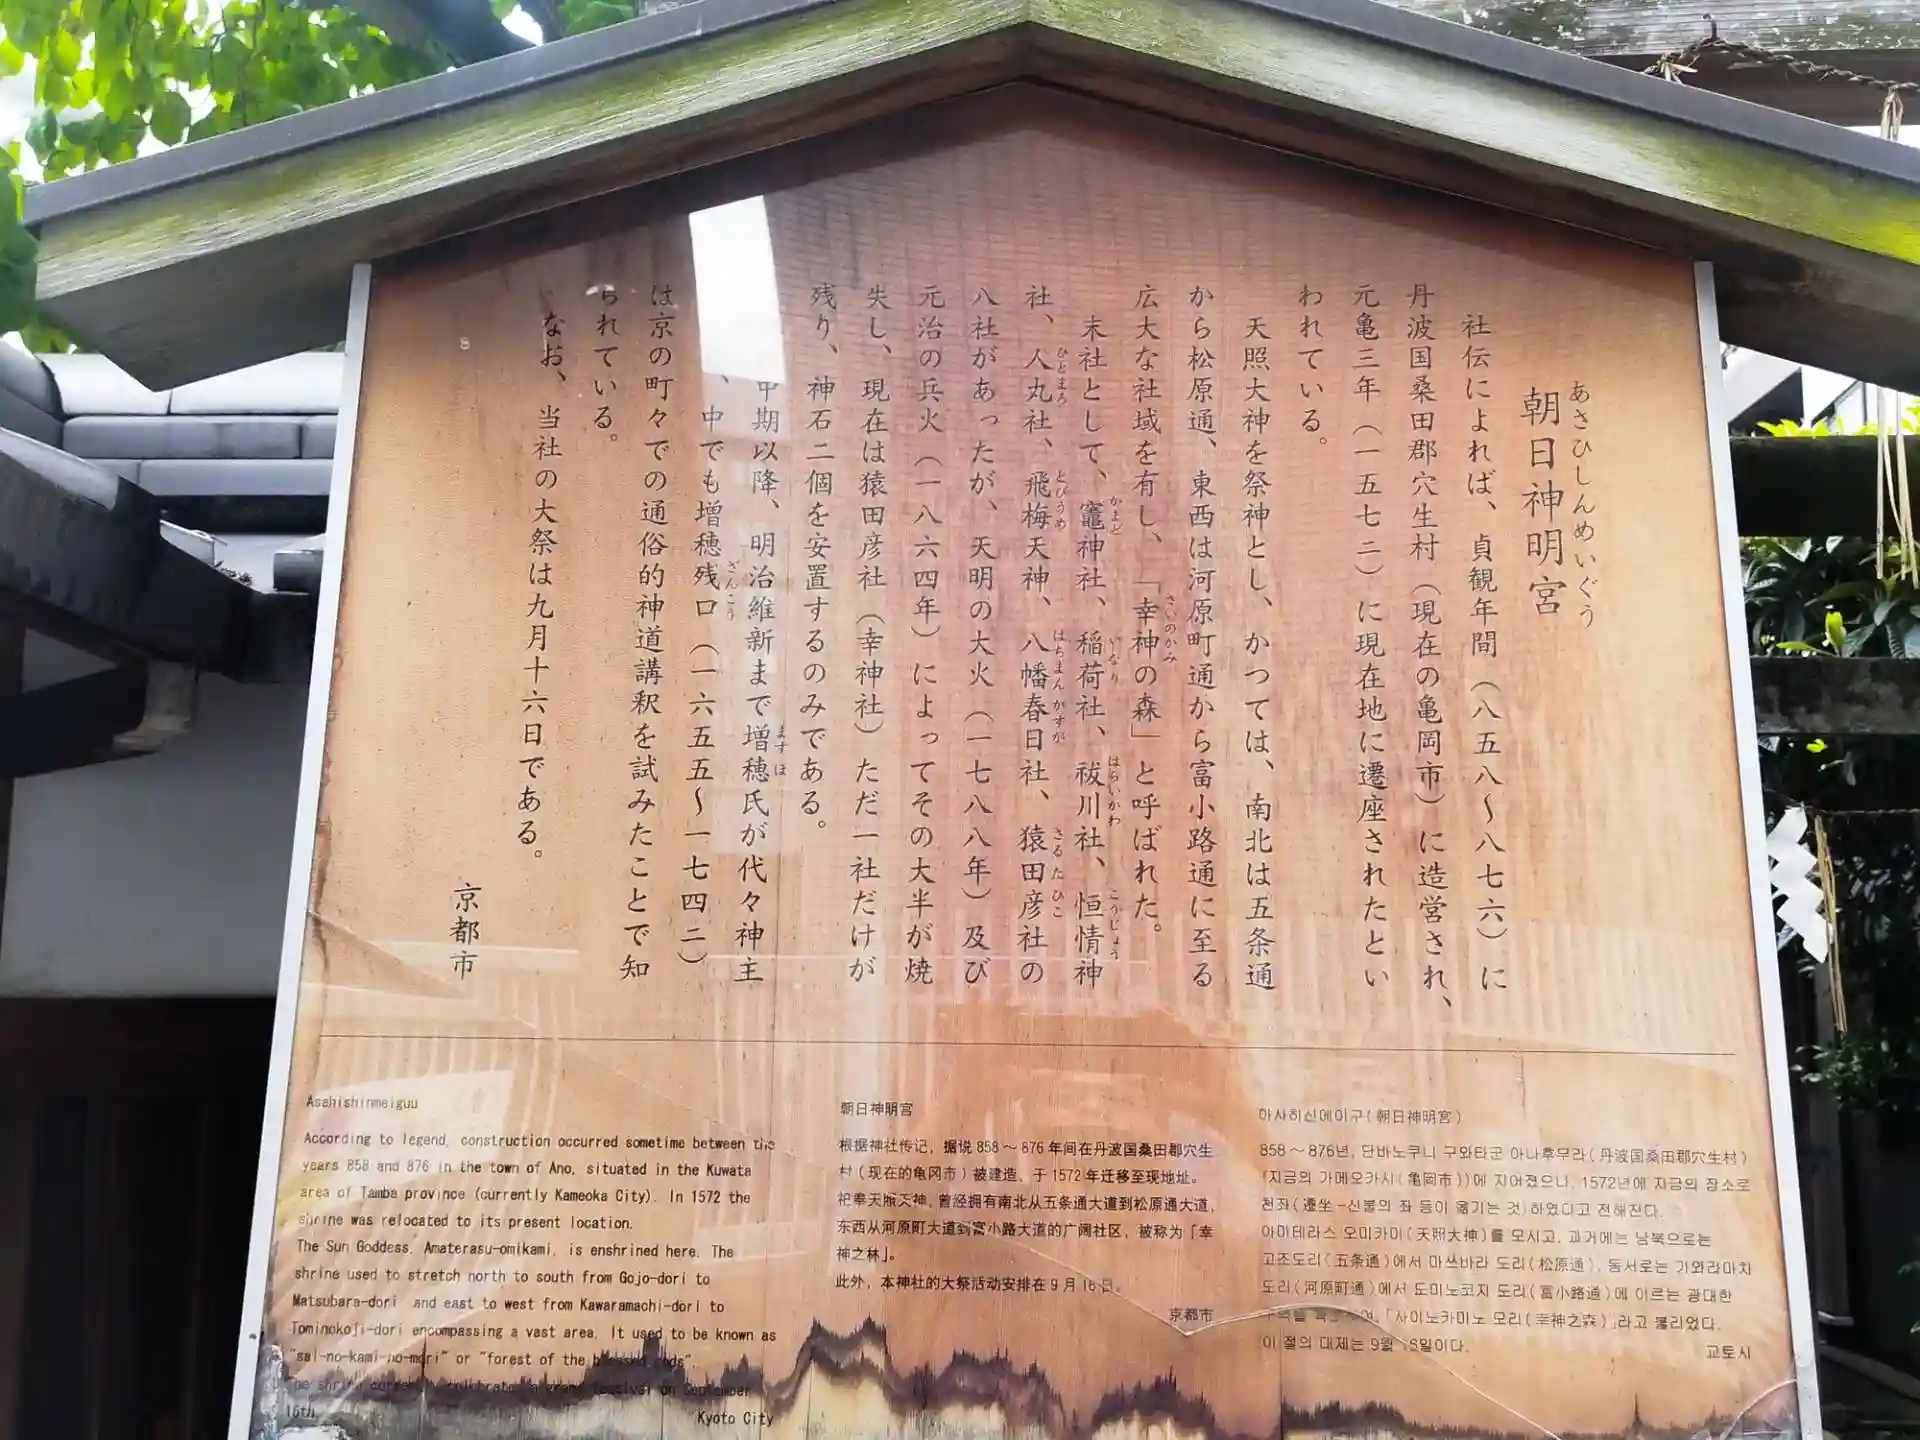 あさひしんめいぐう
朝日神明宮
社伝によれば、貞観年間（八五八～八七六）に
丹波国桑田郡穴生村（現在の亀岡市）に造営され、
元亀三年（一五七二）に現在地に遷座されたとい
われている。
天照大神を祭神とし、かつては、南北は五条通
から松原通、東西は河原町通から富小路通に至る
広大な社域を有し、「幸神の森」と呼ばれた。
さいのかみ
末社として、竈神社、稲荷社、祓川社、恒情神
かまど いなり はらいかわ こうじょう
社、人丸社、飛梅天神、八幡春日社、猿田彦社の
ひとまろ とびうめ はちまんかすが さるたひこ
八社があったが、天明の大火（一七八八年）及び
元治の兵火（一八六四年）によってその大半が焼
失し、現在は猿田彦社（幸神社）ただ一社だけが
残り、神石二個を安置するのみである。
中期以降、明治維新まで増穂氏が代々神主
ますほ
、中でも増穂残口（一六五五～一七四二）
ざんこう
は京の町々での通俗的神道講釈を試みたことで知
られている。
なお、当社の大祭は九月十六日である。
京都市
Asahishinmeiguu
According to legend, construction occurred sometime between the
years 858 and 876 in the town of Ano, situated in the Kuwata
area of Tamba province (currently Kameoka City). In 1572 the
shrine was relocated to its present location.
The Sun Goddess, Amaterasu-omikami, is enshrined here. The
shrine used to stretch north to south from Gojo-dori to
Matsubara-dori and east to west from Kawaramachi-dori to
Tominokoji-dori encompassing a vast area. It used to be known as
"sai-no-kami-no-mori" or "forest of the
The shrine festival on September
16th.
Kyoto City
朝日神明宮
根据神社传记，据说858～876年间在丹波国桑田郡穴生
村（现在的亀冈市）被建造，于1572年迁移至现地址。
祀奉天照天神，曾经拥有南北从五条通大道到松原通大道，
东西从河原町大道到富小路大道的广阔社区，被称为「幸
神之林」。
此外，本神社的大祭活动安排在9月16日。
京都市
아사히신메이구(朝日神明宮)
858～876년, 단바노쿠니 구와타군 아나후무라(丹波国桑田郡穴生村)
(지금의 가메오카시(亀岡市))에 지어졌으나, 1572년에 지금의 장소로
천좌(遷坐-신불의 좌 등이 옮기는 것)하였다고 전해진다.
아마테라스 오미카미(天照大神)를 모시고, 과거에는 남북으로는
고조도리(五条通)에서 마쓰바라 도리(松原通), 동서로는 가와라마치
도리(河原町通)에서 도미노코지 도리(富小路通)에 이르는 광대한
「사이노카미노 모리(幸神之森)」라고 불리었다.
이 절의 대제는 9월 일이다.
교토시